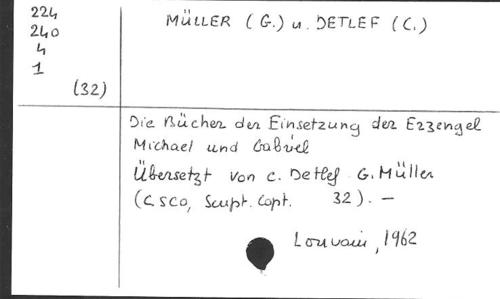 224
240
4
1
(32)
MÜLLER (G.) u. DETLEF (C.)
Die Bücher der Einsetzung der Erzengel
Michael und Gabriel
Übersetzt von C. Detlef G. Müller
(CSCO, Script. Copt. 32). —
Louvain, 1962